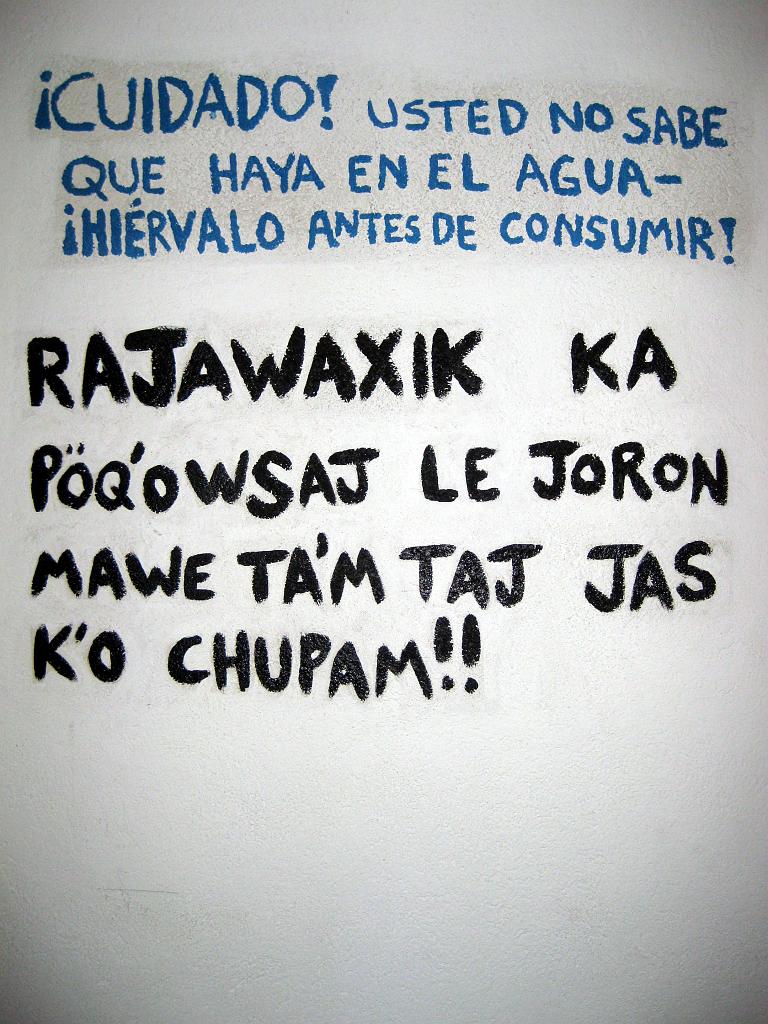 ¡CUIDADO! USTED NO SABE
QUE HAYA EN EL AGUA-
¡HIÉRVALO ANTES DE CONSUMIR!
RAJAWAXIK KA
PÖQ'OWSAJ LE JORON
MAWE TA'M TAJ JAS
K'O CHUPAM!!